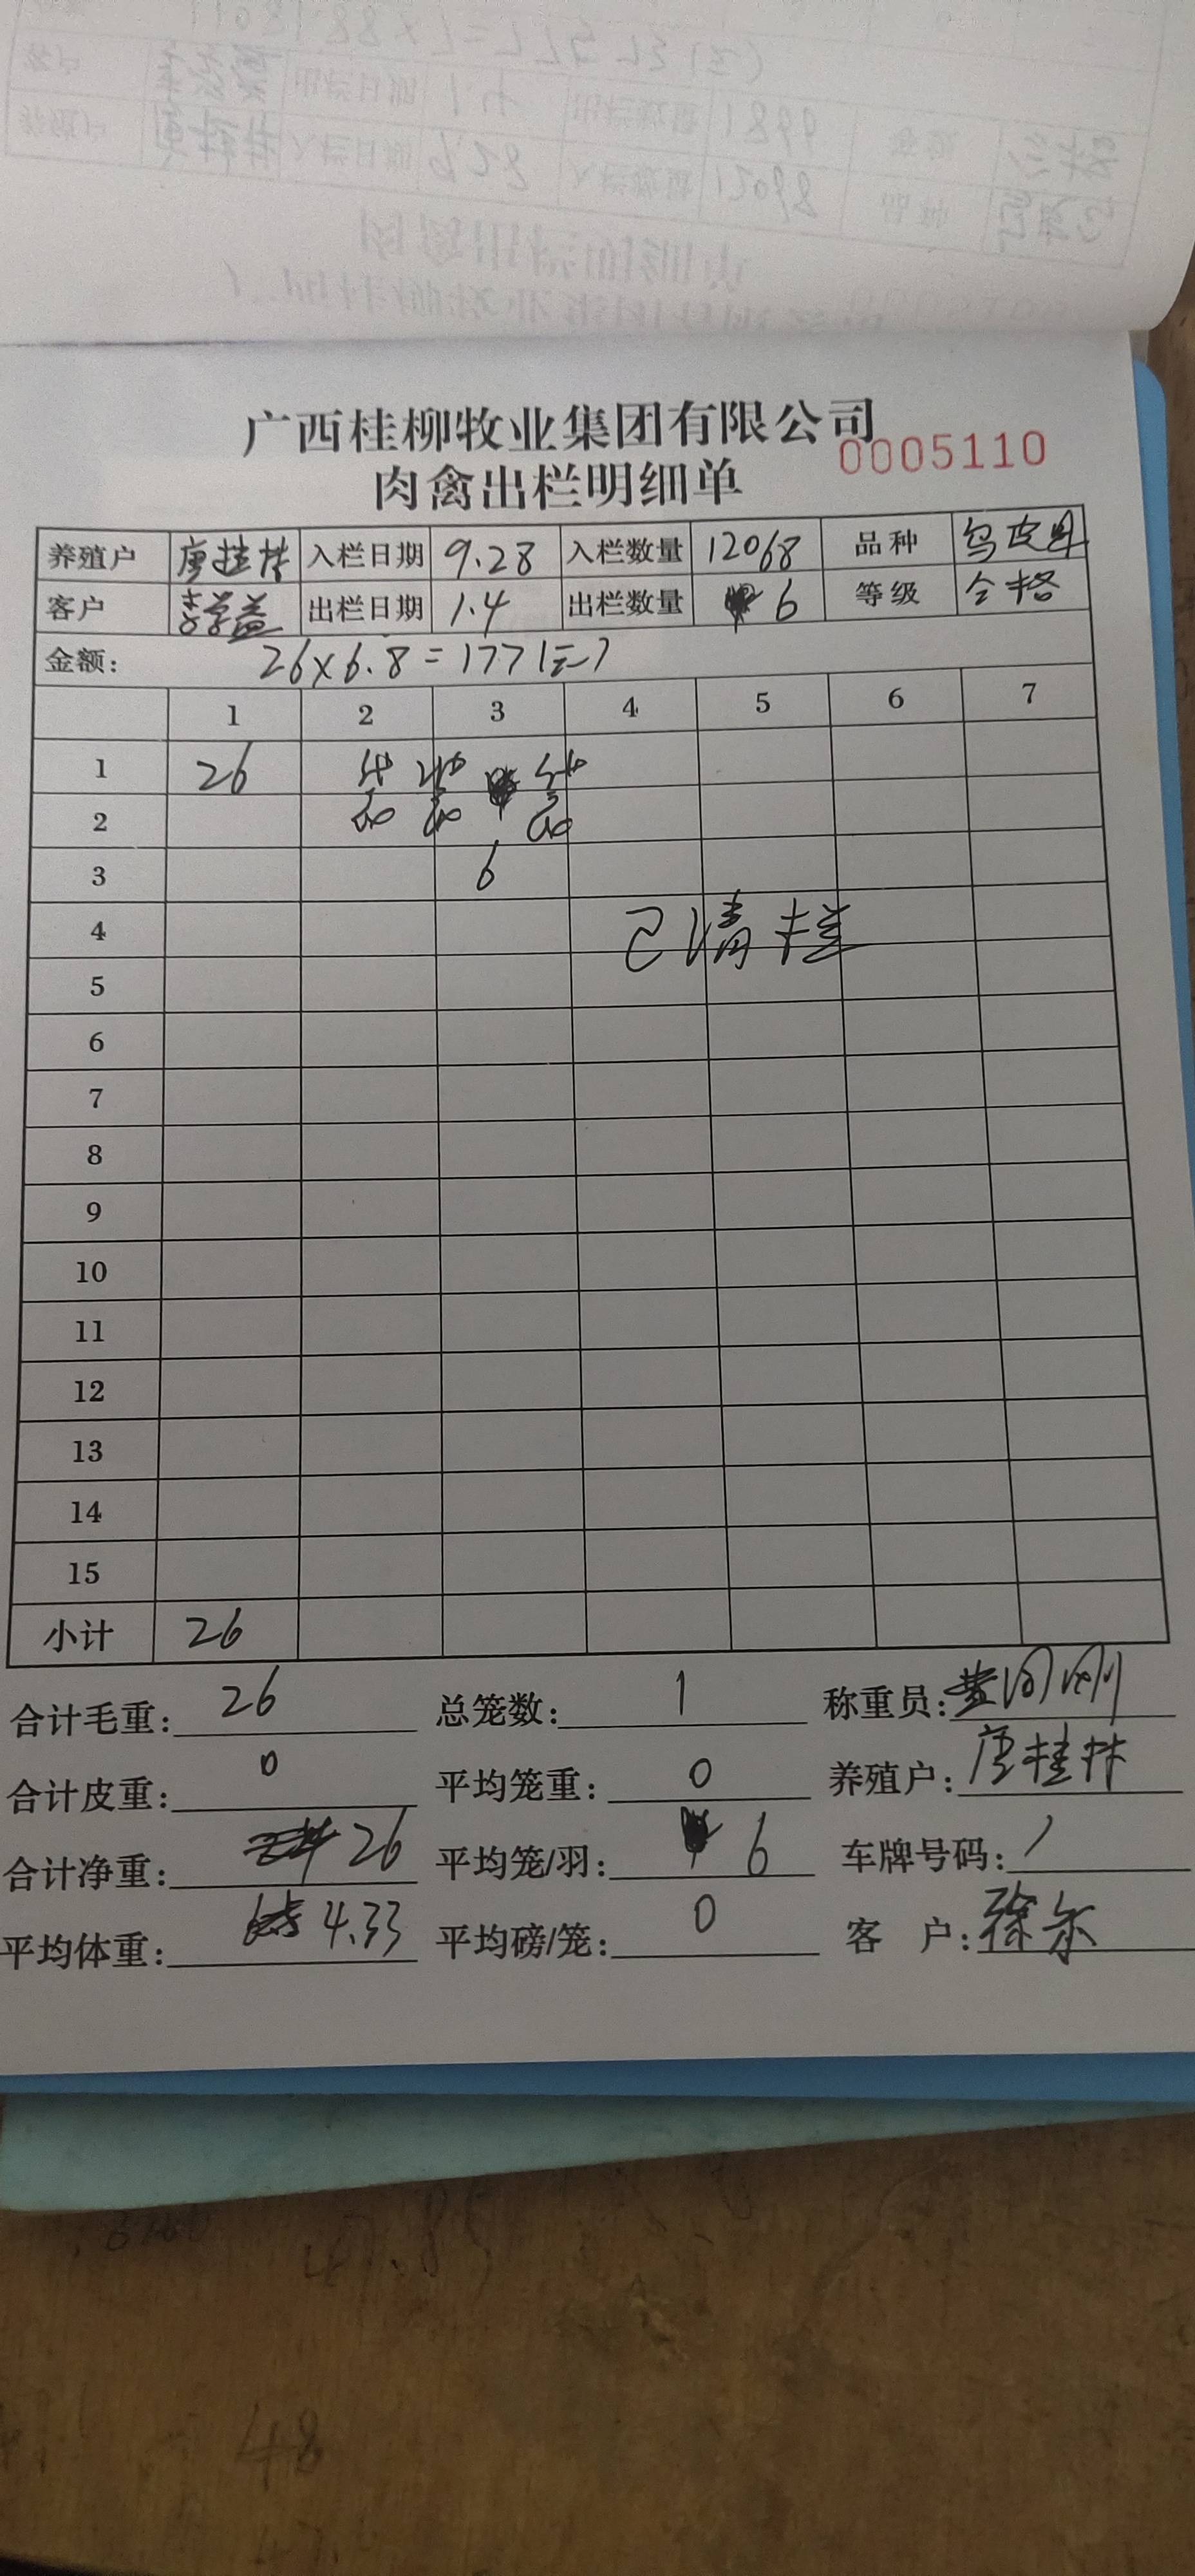 广西桂柳牧业集团有限公司
0005110
肉禽出栏明细单
养殖户 唐桂林 入栏日期 9.28 入栏数量 12068 品种 乌皮
客户 李学益 出栏日期 1.4 出栏数量 6 等级 合格
金额: 26×6.8=177(元)
1 2 3 4 5 6 7
1 26
2
3 6
4 已清栏
5
6
7
8
9
10
11
12
13
14
15
小计 26
合计毛重: 26 总笼数: 1 称重员:
合计皮重: 0 平均笼重: 0 养殖户: 唐桂林
合计净重: 26 平均笼/羽: 6 车牌号码: /
平均体重: 4.33 平均磅/笼: 0 客 户:
48